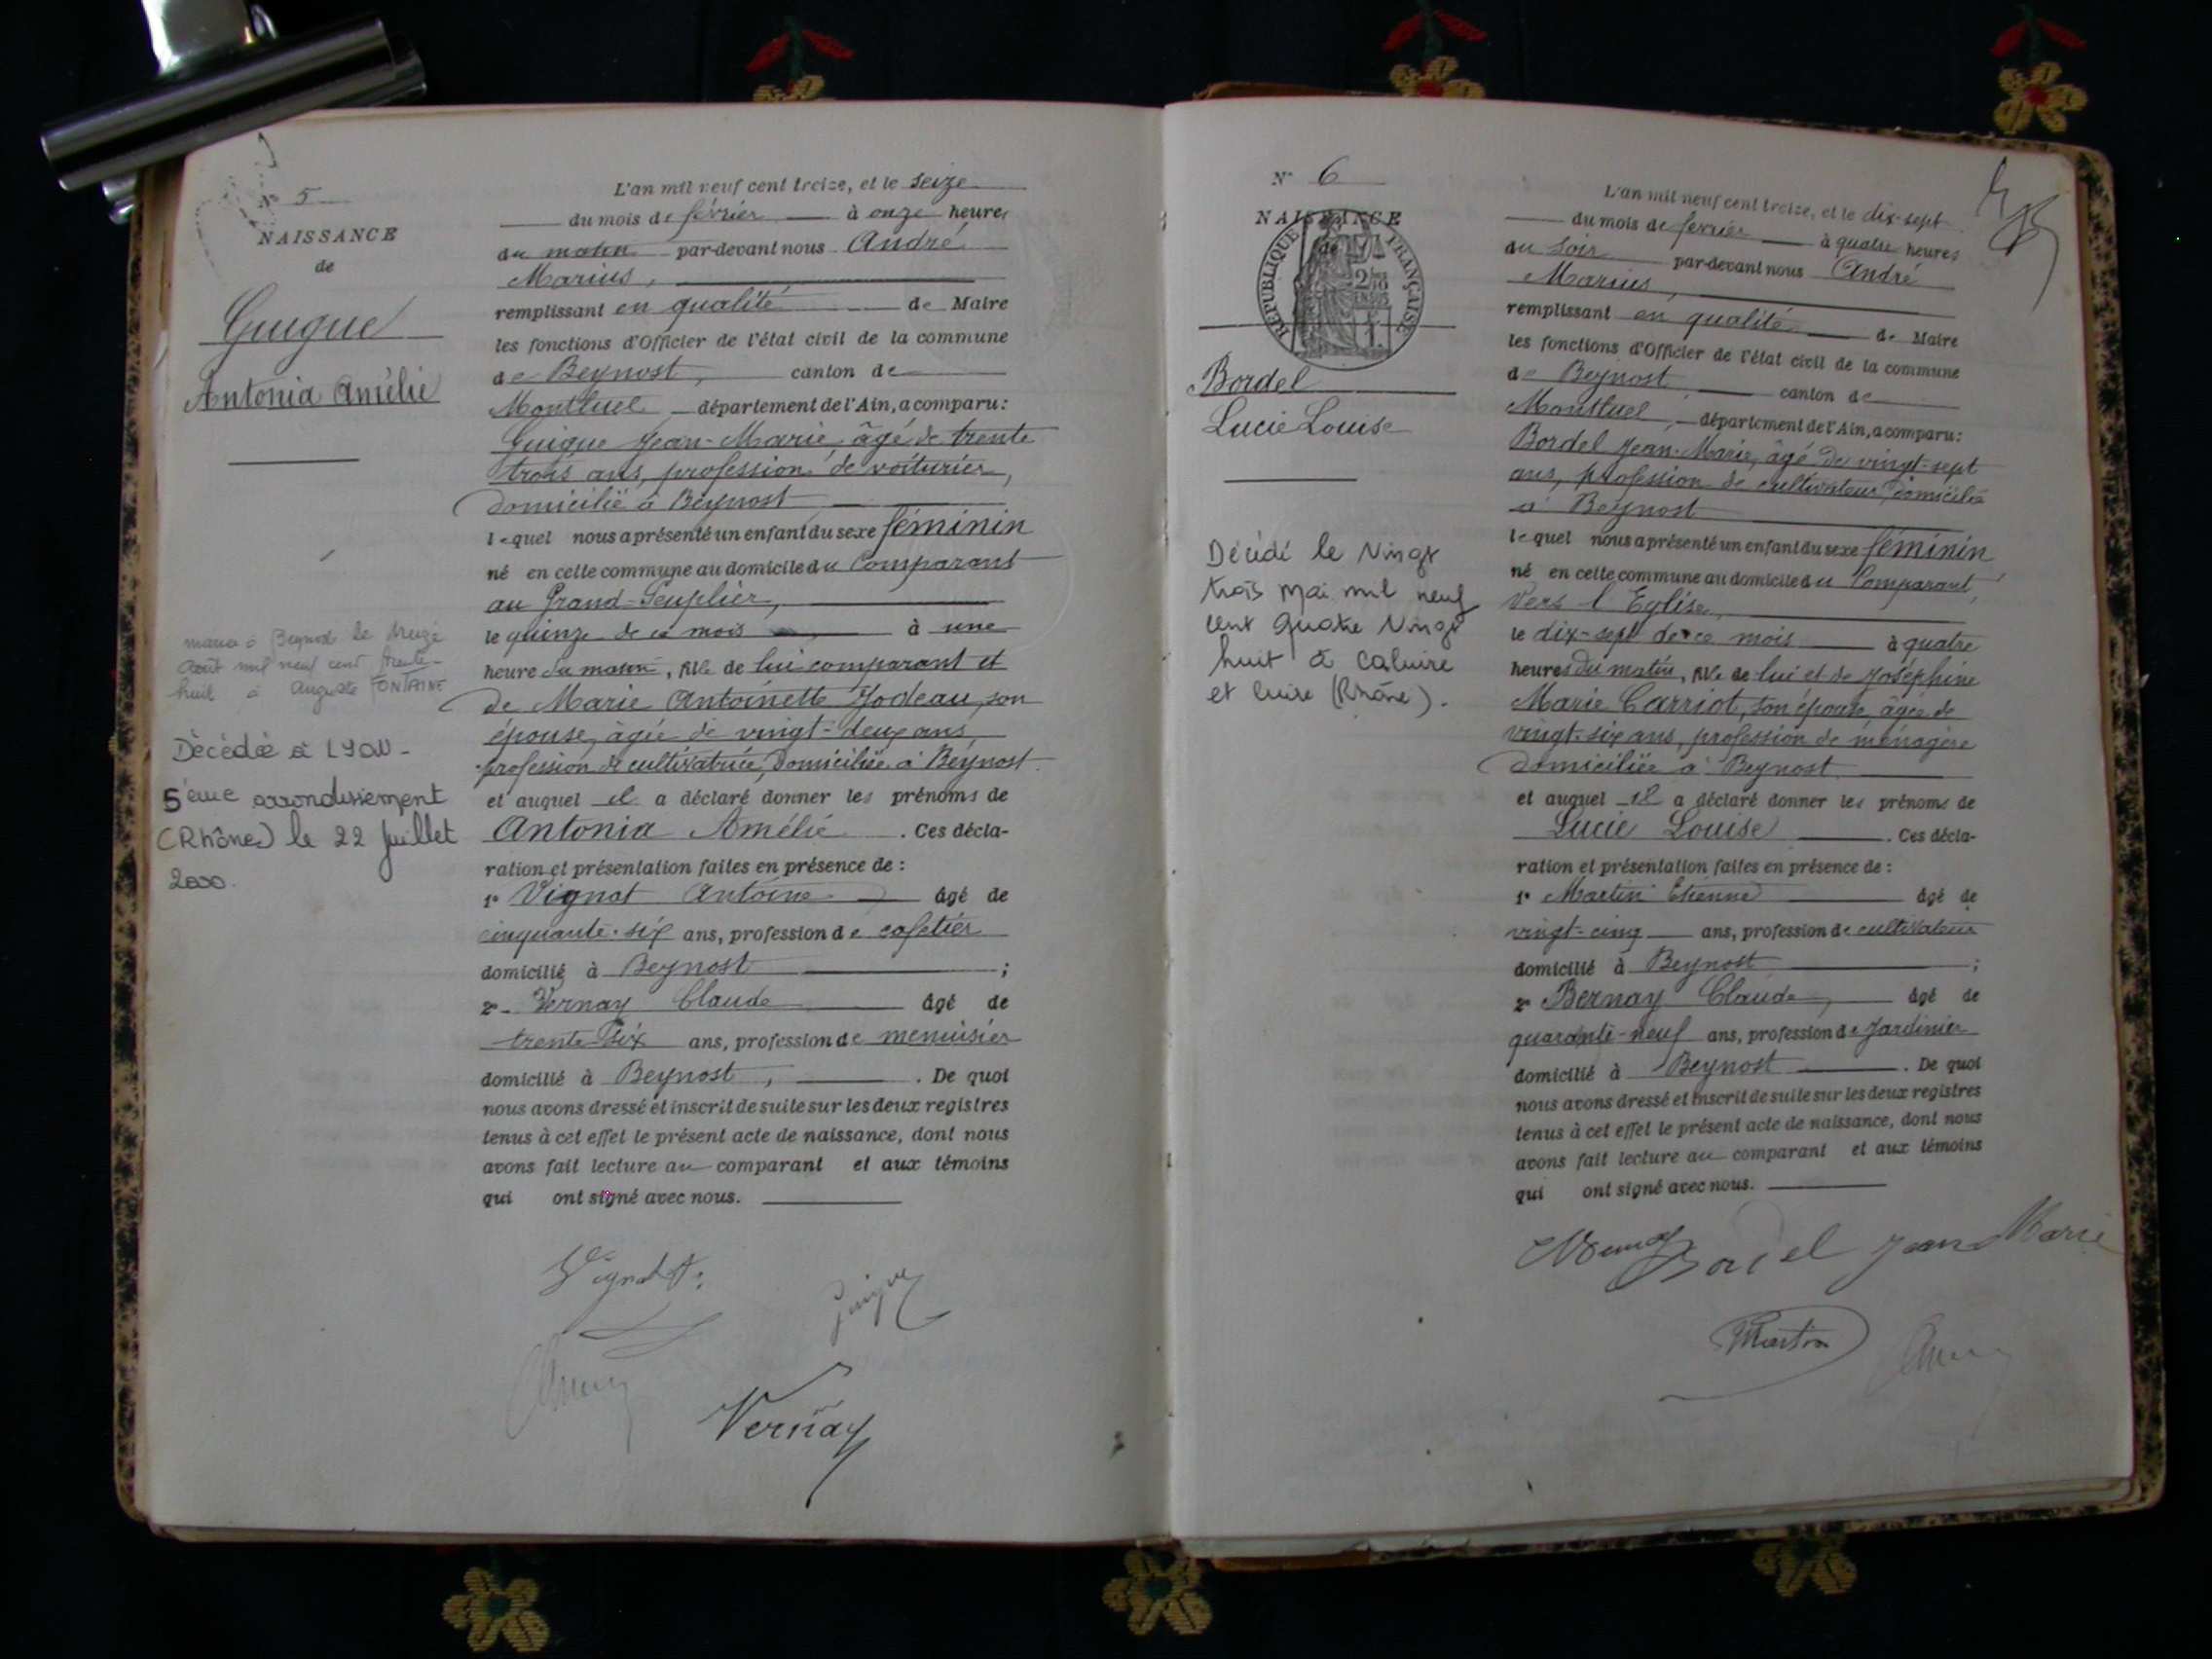 N° 5
NAISSANCE
de
Guigue
Antonia Amélie
marié à Beynost le treize
août mil neuf cent trente-
huit à Auguste FONTAINE
Décédée à LYON -
5ème arrondissement
(Rhône) le 22 Juillet
2000.
L'an mil neuf cent treize, et le seize
du mois de février à onze heures
du matin par-devant nous André
Marius,
remplissant en qualité de Maire
les fonctions d'Officier de l'état civil de la commune
de Beynost, canton de
Montluel département de l'Ain, a comparu:
Guigue Jean-Marie âgé de trente
trois ans, profession de voiturier,
domicilié à Beynost
lequel nous a présenté un enfant du sexe féminin
né en cette commune au domicile du Comparant
au Grand-Peuplier,
le quinze de ce mois à une
heure du matin, fille de lui comparant et
de Marie Antoinette Jodeau, son
épouse, âgée de vingt-deux ans,
profession de cultivatrice, domiciliée à Beynost.
et auquel il a déclaré donner les prénoms de
Antonia Amélie. Ces décla-
ration et présentation faites en présence de :
1° Vignat Antoine âgé de
cinquante-six ans, profession de cafetier
domicilié à Beynost ;
2° Vernay Claude âgé de
trente-six ans, profession de menuisier
domicilié à Beynost, . De quoi
nous avons dressé et inscrit de suite sur les deux registres
tenus à cet effet le présent acte de naissance, dont nous
avons fait lecture au comparant et aux témoins
qui ont signé avec nous.
Vignat A.
Guigue
Vernay
N° 6
NAISSANCE
de
RÉPUBLIQUE FRANÇAISE
Bordel
Lucie Louise
Décédé le Vingt
trois Mai mil neuf
cent Quatre Vingt
huit à Caluire
et Cuire (Rhône).
L'an mil neuf cent treize, et le dix-sept
du mois de février à quatre heures
du soir par-devant nous André
Marius,
remplissant en qualité de Maire
les fonctions d'Officier de l'état civil de la commune
de Beynost canton de
Montluel, département de l'Ain, a comparu:
Bordel Jean-Marie, âgé de vingt-sept
ans, profession de cultivateur, domicilié
à Beynost
lequel nous a présenté un enfant du sexe féminin
né en cette commune au domicile du Comparant,
Vers l'Eglise,
le dix-sept de ce mois à quatre
heures du matin, fille de lui et de Joséphine
Marie Carriot, son épouse, âgée de
vingt-six ans, profession de ménagère
domiciliée à Beynost
et auquel il a déclaré donner les prénoms de
Lucie Louise . Ces décla-
ration et présentation faites en présence de :
1° Martin Etienne âgé de
vingt-cinq ans, profession de cultivateur
domicilié à Beynost ;
2° Bernay Claude, âgé de
quarante-neuf ans, profession de Jardinier
domicilié à Beynost . De quoi
nous avons dressé et inscrit de suite sur les deux registres
tenus à cet effet le présent acte de naissance, dont nous
avons fait lecture au comparant et aux témoins
qui ont signé avec nous.
Bordel Jean Marie
Martin